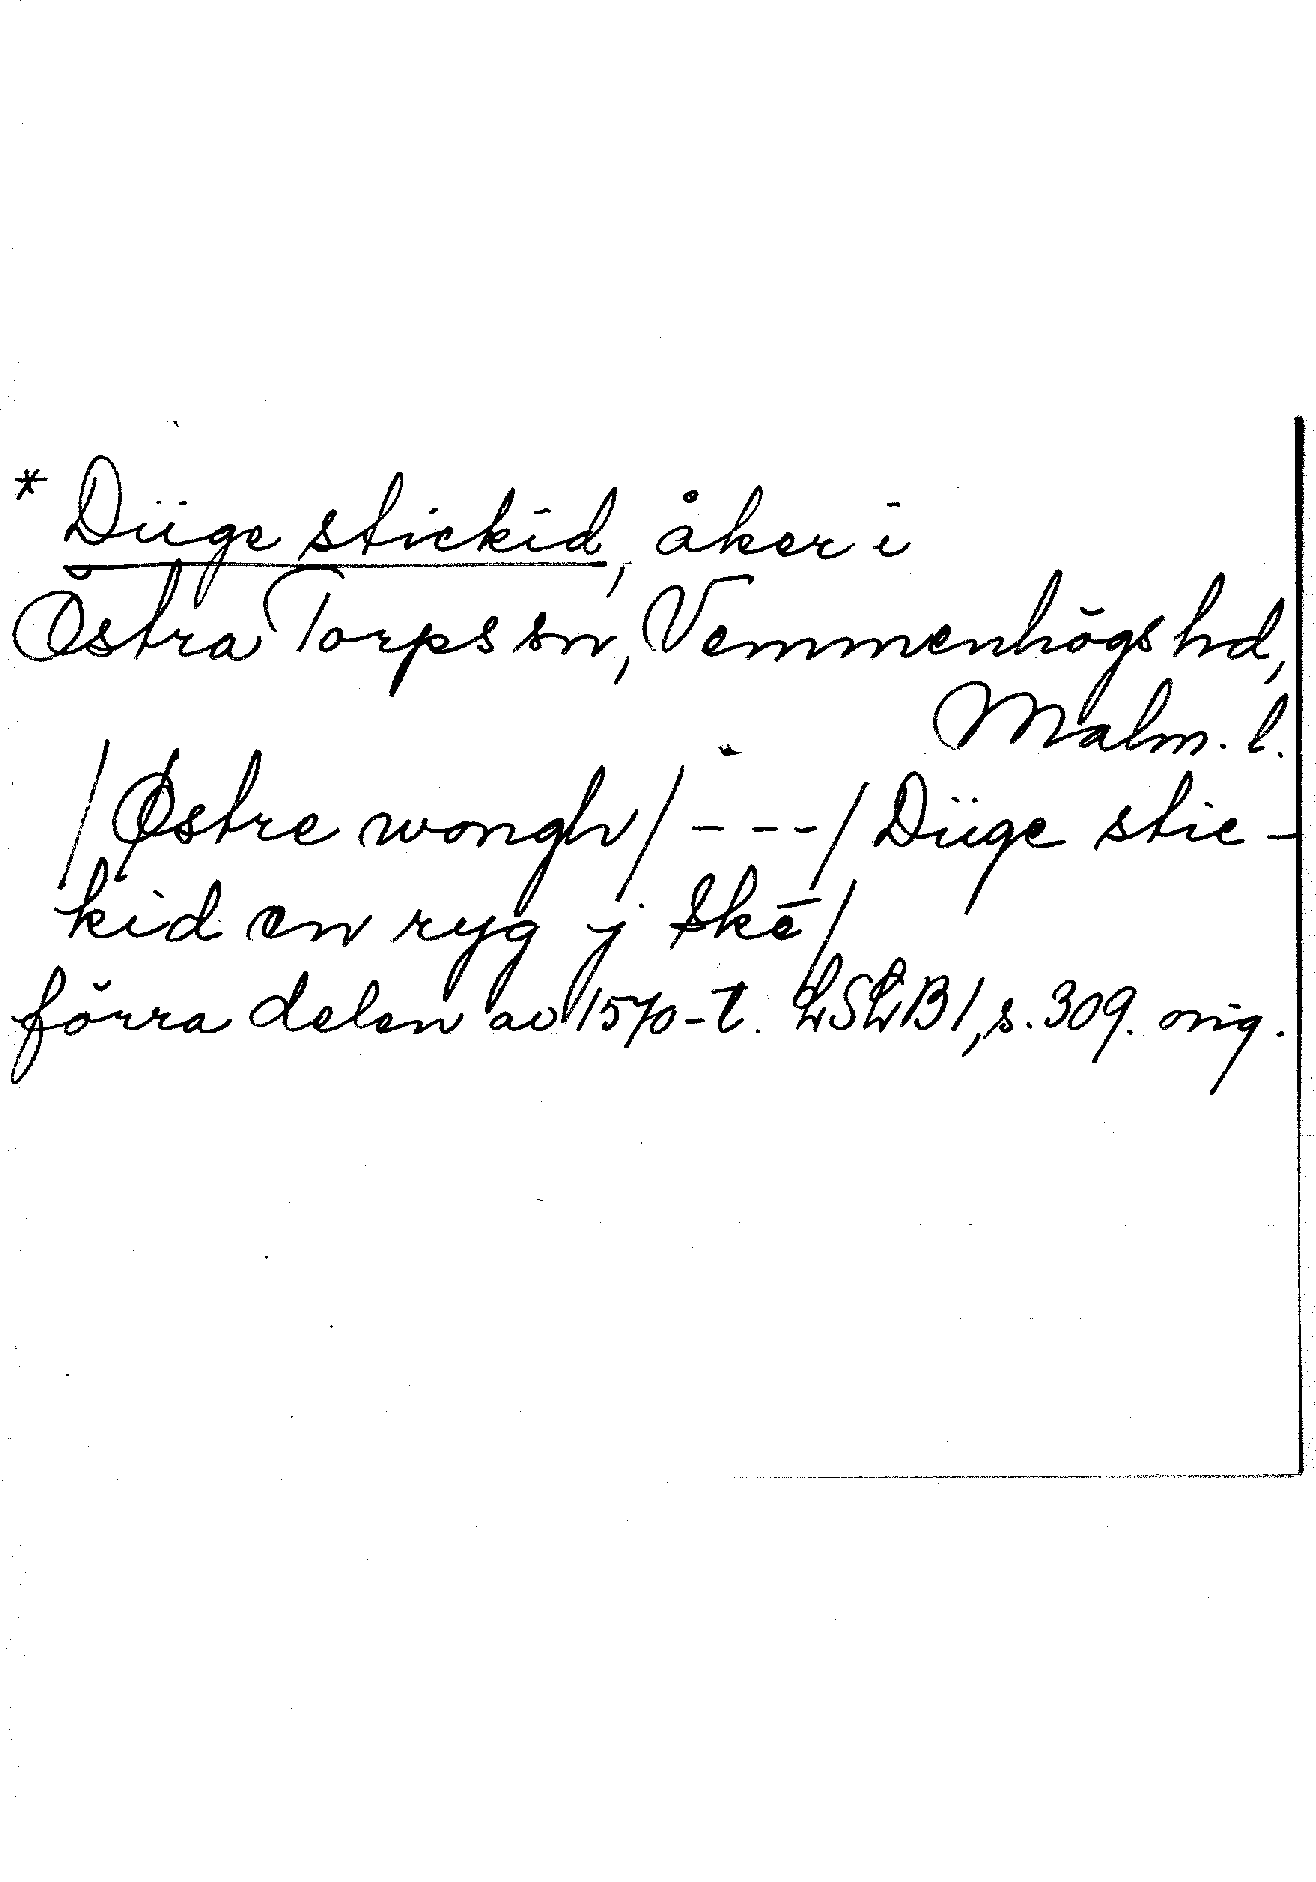 * Düge stickid, åker i
Östra Torps sn, Vemmenhögs hd,
Malm. l.
/Østre wongh/ - - - / Düge stic-
kid en ryg j skē/
förra delen av 1570-t. LSLB1, s. 309. orig.